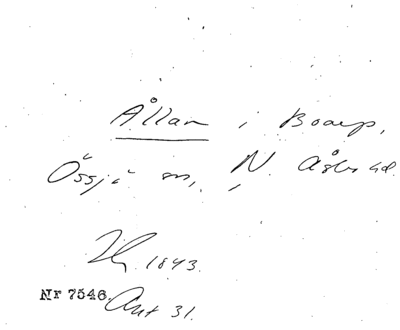 Ållan i Boarp,
Össjö sn, N. Åsbo hd.
1843.
Nr 7546. Akt 31.